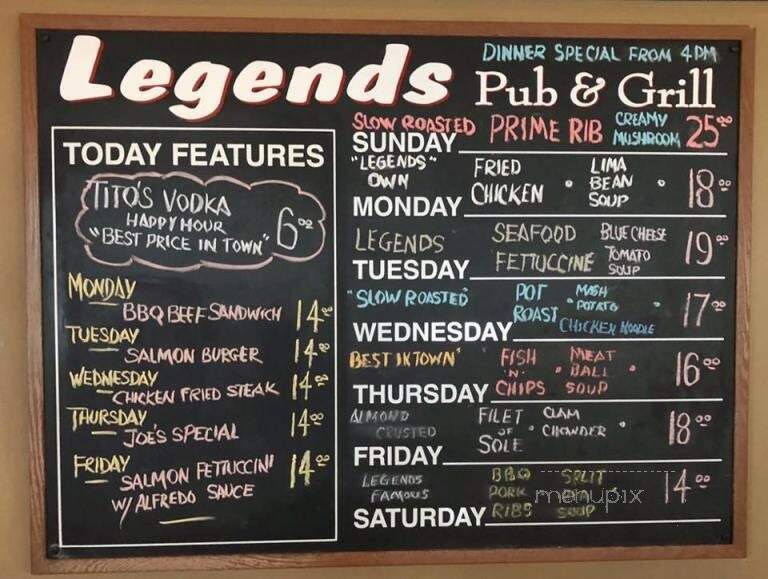 DINNER SPECIAL FROM 4PM
Legends Pub & Grill
TODAY FEATURES
TITO'S VODKA
HAPPY HOUR
"BEST PRICE IN TOWN" 6.00
MONDAY
BBQ BEEF SANDWICH 14.00
TUESDAY
SALMON BURGER 14.00
WEDNESDAY
CHICKEN FRIED STEAK 14.00
THURSDAY
JOE'S SPECIAL 14.00
FRIDAY
SALMON FETTUCCINI 14.00
W/ ALFREDO SAUCE
SLOW ROASTED PRIME RIB CREAMY MUSHROOM 25.00
SUNDAY
"LEGENDS" OWN FRIED CHICKEN • LIMA BEAN SOUP • 18.00
MONDAY
LEGENDS SEAFOOD FETTUCCINE BLUE CHEESE TOMATO SOUP 19.00
TUESDAY
"SLOW ROASTED" POT ROAST • MASH POTATO • CHICKEN NOODLE 17.00
WEDNESDAY
BEST IN TOWN" FISH 'N' CHIPS • MEAT BALL SOUP • 16.00
THURSDAY
ALMOND CRUSTED FILET OF SOLE • CLAM CHOWDER • 18.00
FRIDAY
LEGENDS FAMOUS BBQ PORK RIBS SPLIT SOUP 14.00
SATURDAY
menupix